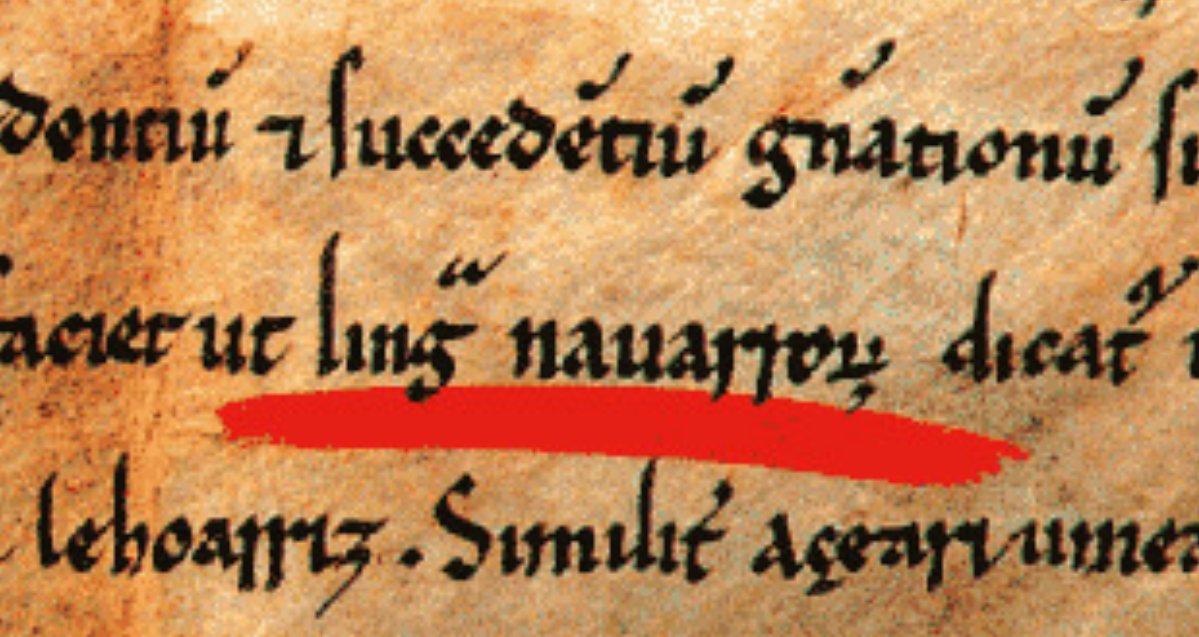 dentiū ⁊ succedētiū gn̄ationū
faciet ut lingᵃ nauarroꝝ dicat᷑
lehoarriz. Similit᷑ açeari umea